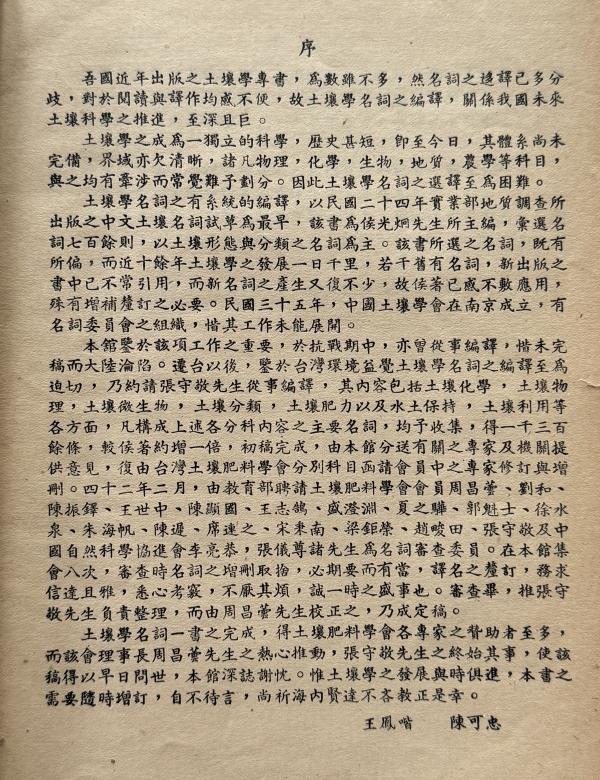 序
吾國近年出版之土壤學專書，為數雖不多，然名詞之迻譯已多分
歧，對於閱讀與譯作均感不便，故土壤學名詞之編譯，關係我國未來
土壤科學之推進，至深且巨。
土壤學之成為一獨立的科學，歷史甚短，即至今日，其體系尚未
完備，界域亦欠清晰，諸凡物理，化學，生物，地質，農學等科目，
與之均有牽涉而常覺難予劃分。因此土壤學名詞之選譯至為困難。
土壤學名詞之有系統的編譯，以民國二十四年實業部地質調查所
出版之中文土壤名詞試草為最早，該書為侯光炯先生所主編，彙選名
詞七百餘則，以土壤形態與分類之名詞為主。該書所選之名詞，既有
所偏，而近十餘年土壤學之發展一日千里，若干舊有名詞，新出版之
書中已不常引用，而新名詞之產生又復不少，故侯著已感不敷應用，
殊有增補釐訂之必要。民國三十五年，中國土壤學會在南京成立，有
名詞委員會之組織，惜其工作未能展開。
本館鑒於該項工作之重要，於抗戰期中，亦曾從事編譯，惜未完
稿而大陸淪陷。遷台以後，鑒於台灣環境益覺土壤學名詞之編譯至為
迫切，乃約請張守敬先生從事編譯，其內容包括土壤化學，土壤物
理，土壤微生物，土壤分類，土壤肥力以及水土保持，土壤利用等
各方面，凡構成上述各分科內容之主要名詞，均予收集，得一千三百
餘條，較侯著約增一倍，初稿完成，由本館分送有關之專家及機關提
供意見，復由台灣土壤肥料學會分別科目函請會員中之專家修訂與增
刪。四十二年二月，由教育部聘請土壤肥料學會會員周昌蕓、劉和、
陳振鐸、王世中、陳顯國、王志鵠、盛澄淵、夏之驊、郭魁士、徐水
泉、朱海帆、陳遲、席連之、宋秉南、梁鉅榮、趙畯田、張守敬及中
國自然科學協進會李亮恭，張儀尊諸先生為名詞審查委員。在本館集
會八次，審查時名詞之增刪取捨，必期要而有當，譯名之釐訂，務求
信達且雅，悉心考覈，不厭其煩，誠一時之盛事也。審查畢，推張守
敬先生負責整理，而由周昌蕓先生校正之，乃成定稿。
土壤學名詞一書之完成，得土壤肥料學會各專家之贊助者至多，
而該會理事長周昌蕓先生之熱心推動，張守敬先生之終始其事，使該
稿得以早日問世，本館深誌謝忱。惟土壤學之發展與時俱進，本書之
需要隨時增訂，自不待言，尚祈海內賢達不吝教正是幸。
王鳳喈　　陳可忠